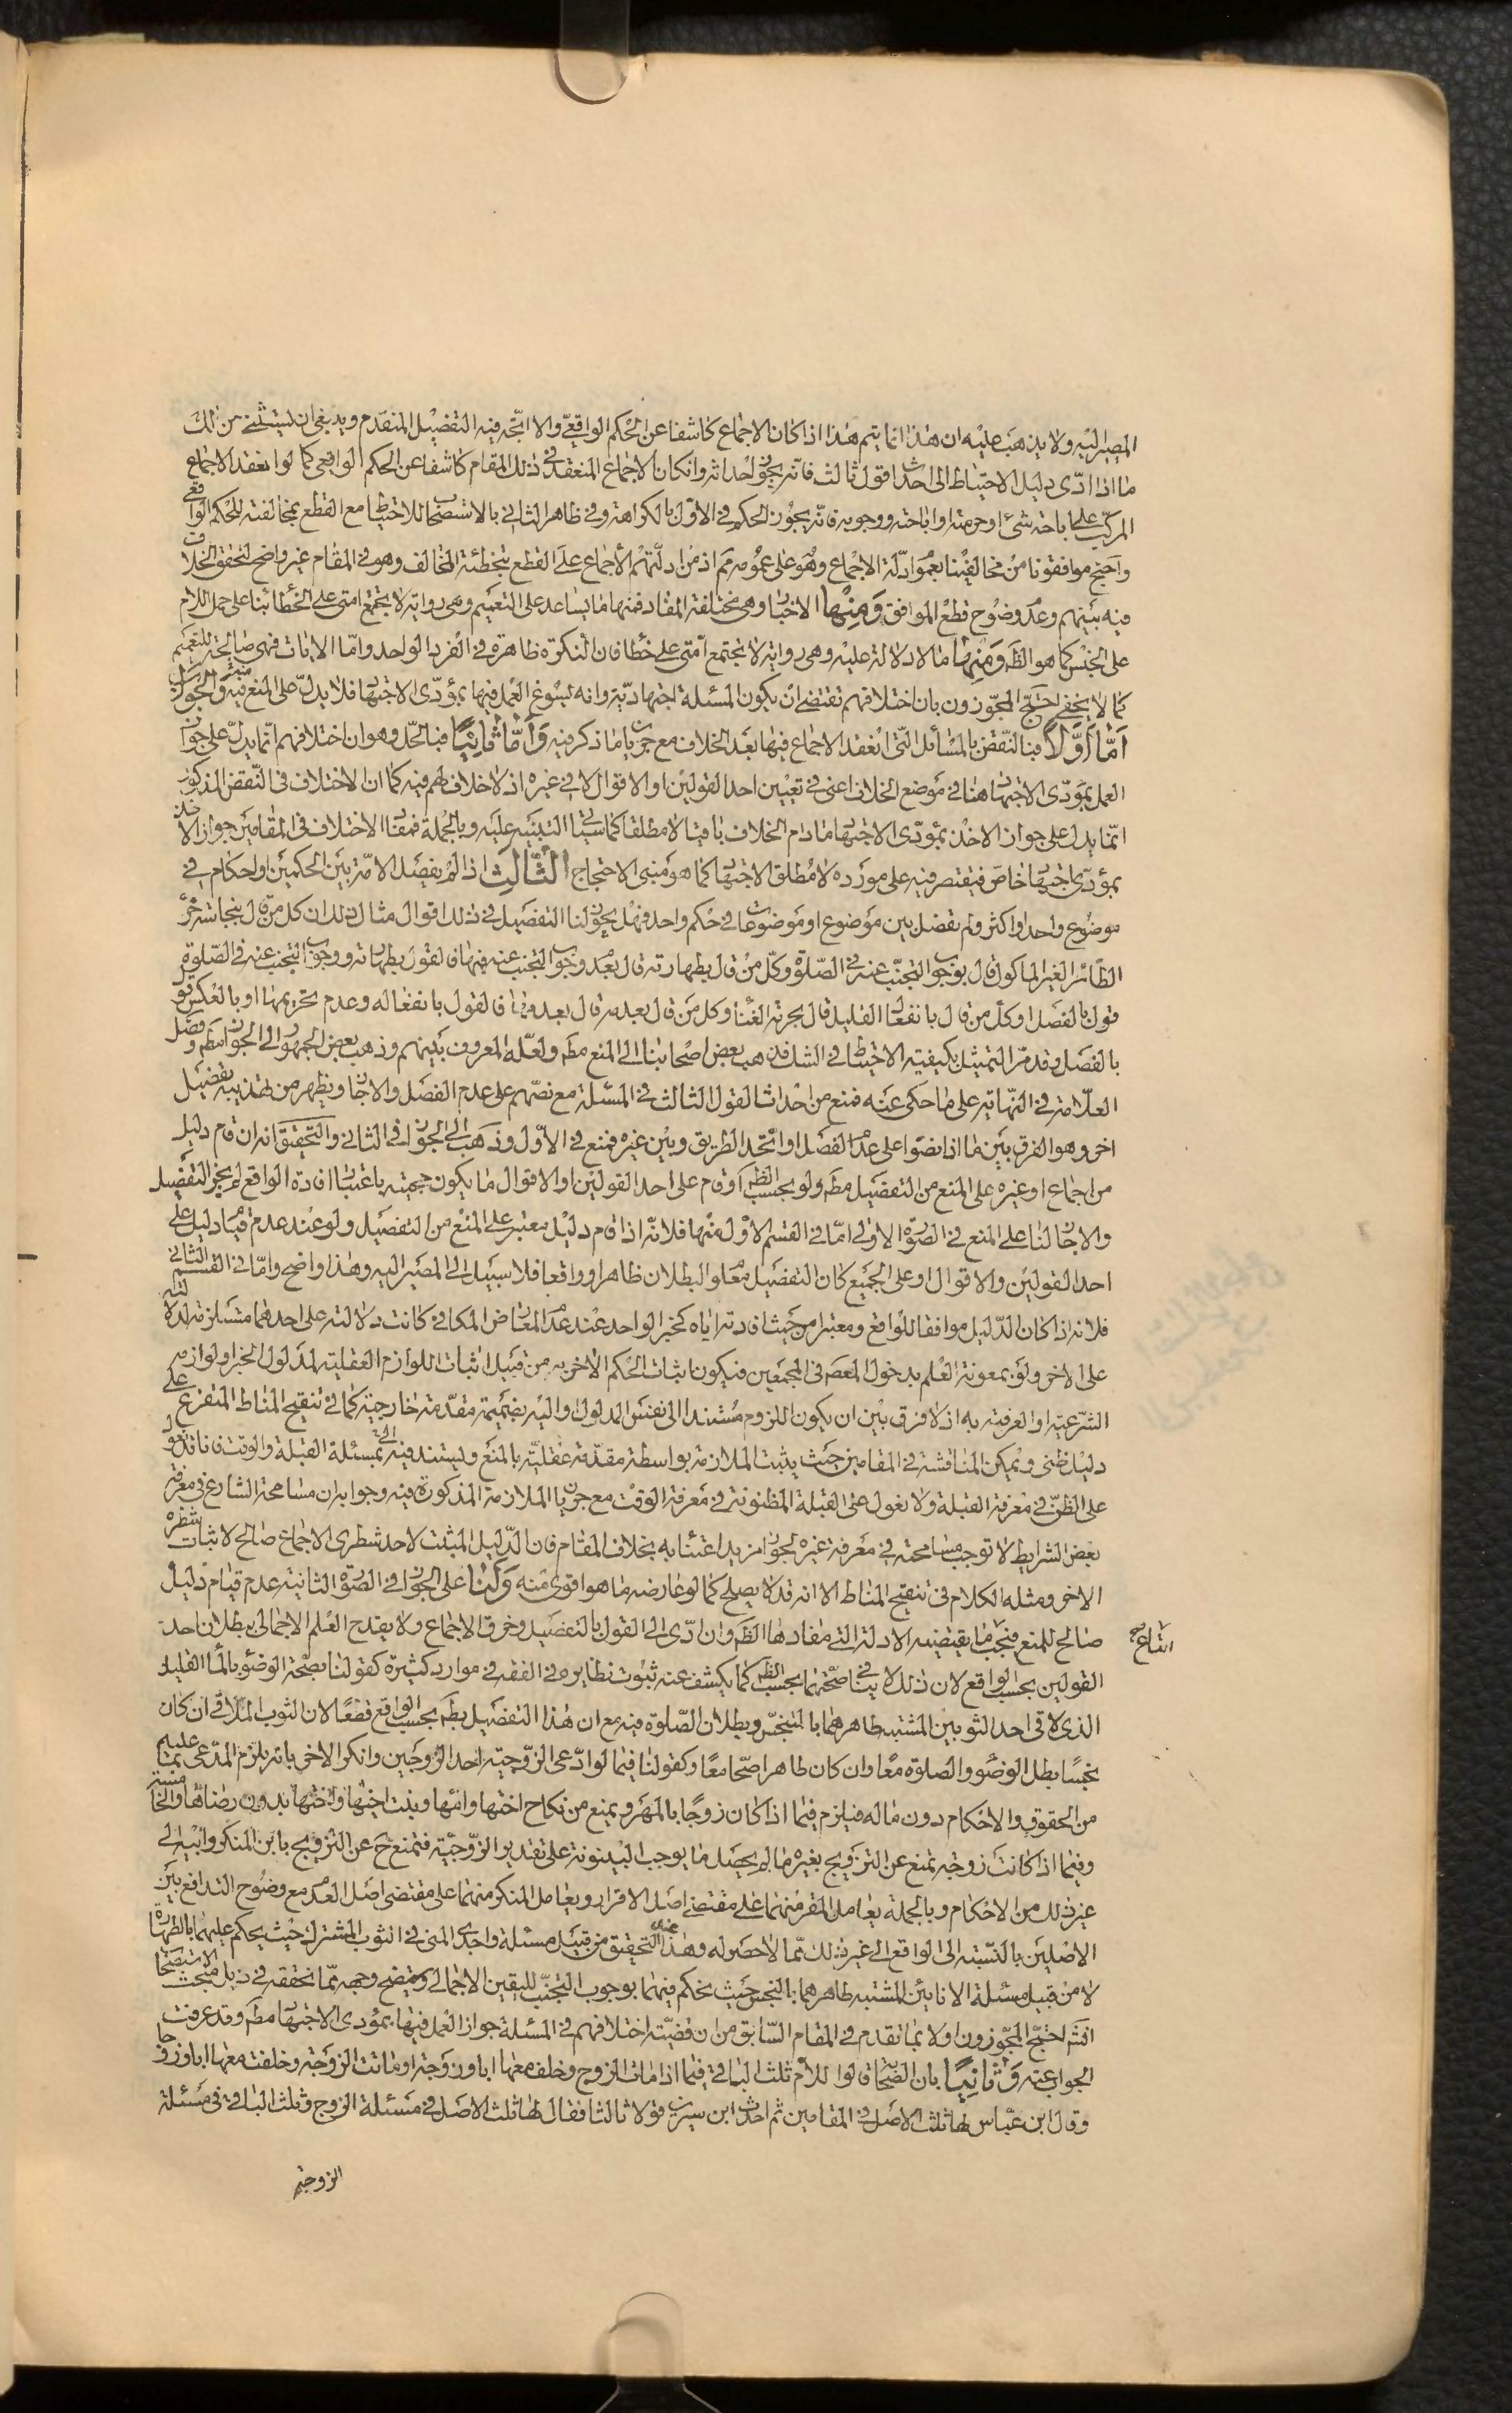 المصير اليه ولا يذهب عليه ان هذا انما يتم هذا اذا كان الاجماع كاشفا عن الحكم الواقعي والا اتجه فيه التفضيل المتقدم وينبغي ان يستثنى من ذلك
ما اذا ادّى دليل الاحتياط الى احداث قول ثالث فانه يجوز احداثه وان كان الاجماع المنعقد في ذلك المقام كاشفا عن الحكم الواقعي كما لو انعقد الاجماع
المركب على اباحة شئ او حرمته او اباحته ووجوبه فانه يجوز الحكم في الاول بالكراهة وفي ظاهر الثاني بالاستحباب للاحتياط مع القطع بمخالفته للحكم الواقعي
واحتج موافقونا من مخالفينا بعموم ادلة الاجماع وهو على عمومه مم اذ من ادلتهم الاجماع على القطع بتخطئة المخالف وهو في المقام غير واضح لتحقق الخلاف
فيه بينهم وعدم وضوح قطع الموافق ومنها الاخبار وهي مختلفة المفاد فمنها ما يساعد على التعميم وهي رواية لا يجتمع امتي على الخطأ بناء على حمل اللام
على الجنس كما هو الظ ومنها ما لا دلالة عليه وهي رواية لا يجتمع امتي على خطأ فان النكرة ظاهرة في الفرد الواحد واما الايات فهي صالحة للتعميم
كما لا يخفى احتج المجوزون بان اختلافهم تقتضي ان يكون المسئلة اجتهادية وانه يسوغ العمل فيها بمؤدى الاجتهاد فلا يدل على المنع فيه والجواب
اما اولا فبالنقض بالمسائل التي انعقد الاجماع فيها بعد الخلاف مع جريان ما ذكر فيه واما ثانيا فبالحل وهو ان اختلافهم انما يدل على جواز
العمل بمؤدى الاجتهاد هنا في موضع الخلاف اعني في تعيين احد القولين او الاقوال لا في غيره اذ لا خلاف لهم فيه كما ان الاختلاف في النقض المذكور
انما يدل على جواز الاخذ بمؤدى الاجتهاد ما دام الخلاف باقيا لا مطلقا كما سياتي التنبيه عليه وبالجملة فمفاد الاختلاف في المقامين جواز الاخذ
بمؤدى اجتهاد خاص فيقتصر فيه على مورده لا مطلق الاجتهاد كما هو مبنى الاحتجاج الثالث اذا لم يفصل الامة بين الحكمين او احكام في
موضوع واحد او اكثر ولم تفصل بين موضوع او موضوعات في حكم واحد فهل يجوز لنا التفصيل في ذلك اقوال مثال ذلك ان كل من قال بنجاسة خرء
الطائر الغير الماكول قال بوجوب التجنب عنه في الصلوة وكل من قال بطهارته قال بعدم وجوب التجنب عنه فيها فالقول بطهارته ووجوب التجنب عنه في الصلوة
قول بالفصل وكل من قال بانفعال القليل قال بحرمة الغناء وكل من قال بعدمه قال بعدمها فالقول بانفعاله وعدم تحريمها او بالعكس قول
بالفصل وقد مر التمثيل بكيفية الاحتياط في الشك فذهب بعض اصحابنا الى المنع مط ولعله المعروف بينهم وذهب بعض الجمهور الى الجواز مط وفصل
العلامة في النهاية على ما حكى عنه فمنع من احداث القول الثالث في المسئلة مع نصهم على عدم الفصل والا جاز ويظهر من تهذيبه تفصيل
اخر وهو الفرق بين ما اذا نصوا على عدم الفصل او اتحد الطريق وبين غيره فمنع في الاول وذهب الى الجواز في الثاني والتحقيق انه ان قام دليل
من اجماع او غيره على المنع من التفصيل مط ولو بحسب الظ او قام على احد القولين او الاقوال ما يكون حجيته باعتبار افادة الواقع لم يجز التفصيل
والا جاز لنا على المنع في الصورة الاولى اما في القسم الاول منها فلانه اذا قام دليل معتبر على المنع من التفصيل ولو عند عدم قيام دليل على
احد القولين والاقوال او على الجميع كان التفصيل معلوم البطلان ظاهرا وواقعا فلا سبيل الى المصير اليه وهذا واضح واما في القسم الثاني
فلانه اذا كان الدليل موافقا للواقع ومعتبرا من حيث افادته اياه كخبر الواحد عند عدم المعارض المكافئ كانت دلالته على احدهما مستلزمة لدلالته
على الاخر ولو بمعونة العلم بدخول المعصوم في المجمعين فيكون اثبات الحكم الاخر به من قبيل اثبات اللوازم العقلية لمدلول الخبر او لوازمه
الشرعية او العرفية به اذ لا فرق بين ان يكون اللزوم مستندا الى نفس المدلول او اليه بضميمة مقدمة خارجية كما في تنقيح المناط المتفرع على
دليل ظني ويمكن المناقشة في المقامين حيث يثبت الملازمة بواسطة مقدمة عقلية بالمنع ويستند فيه الى مسئلة القبلة والوقت فانا قد نعول
على الظن في معرفة القبلة ولا نعول على القبلة المظنونة في معرفة الوقت مع جريان الملازمة المذكورة فيه وجوابه ان مسامحة الشارع في معرفة
بعض الشرايط لا توجب مسامحته في معرفة غيره لجواز مزيد اعتناء به بخلاف المقام فان الدليل المثبت لاحد شطري الاجماع صالح لاثبات شطره
الاخر ومثله الكلام في تنقيح المناط الا انه قد لا يصلح كما لو عارضه ما هو اقوى منه ولنا على الجواز في الصورة الثانية عدم قيام دليل
صالح للمنع فيجب ما يقتضيه الادلة التي مفادها الظ وان ادى الى القول بالتفصيل وخرق الاجماع ولا يقدح العلم الاجمالي ببطلان احد
القولين بحسب الواقع لان ذلك لا ينافي صحتهما بحسب الظ كما يكشف عنه ثبوت نظايره في الفقه في موارد كثيرة كقولنا بصحة الوضوء بالماء القليل
الذي لاقى احد الثوبين المشتبه طاهرهما بالمتنجس وبطلان الصلوة فيه مع ان هذا التفصيل بط بحسب الواقع قطعا لان الثوب الملاقي ان كان
نجسا بطل الوضوء والصلوة معا وان كان طاهرا صحا معا وكقولنا فيما لو ادعى الزوجية احد الزوجين وانكر الاخر بانه يلزم المدعى بما عليه
من الحقوق والاحكام دون ماله فيلزم فيما اذا كان زوجا بالمهر ويمنع من نكاح اختها وامها وبنت اخيها واختها بدون رضاها والخامسة
وفيما اذا كانت زوجة تمنع عن التزويج بغيره ما لم يحصل ما يوجب البينونة على تقدير الزوجية فتمنع ح عن التزويج بابن المنكر وابيه الى
غير ذلك من الاحكام وبالجملة يعامل المقر منهما على مقتضى اصل الاقرار ويعامل المنكر منهما على مقتضى اصل العدم مع وضوح التدافع بين
الاصلين بالنسبة الى الواقع الى غير ذلك مما لا حصر له وهذا التحقيق من قبيل مسئلة واجدي المني في الثوب المشترك حيث يحكم عليهما بالطهارة
لا من قبيل مسئلة الانائين المشتبه طاهرهما بالنجس حيث نحكم فيهما بوجوب التجنب لليقين الاجمالي ويتضح وجهه مما نحققه في ذيل مبحث الاستصحاب
انش احتج المجوزون اولا بما تقدم في المقام السابق من ان قضية اختلافهم في المسئلة جواز العمل فيها بمؤدى الاجتهاد مط وقد عرفت
الجواب عنه وثانيا بان الصحابة قالوا للام ثلث الباقي فيما اذا مات الزوج وخلف معها ابا وزوجة او ماتت الزوجة وخلفت معها ابا وزوجا
وقال ابن عباس لها ثلث الاصل في المقامين ثم احدث ابن سيرين قولا ثالثا فقال لها ثلث الاصل في مسئلة الزوج وثلث الباقي في مسئلة
الزوجة